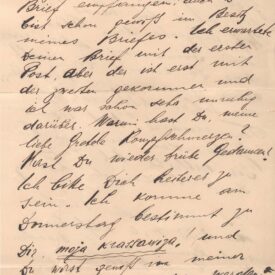 Brief empfangen. auch Du
bist schon gewiß im Besitz
meines Briefes. Ich erwartete
Deinen Brief mit der ersten
Post, aber der ist erst mit
der zweiten gekommen und
ich war schon sehr unruhig
darüber. Warum hast Du, meine
liebe Kopfschmerzen?
Hast Du wieder trübe Gedanken?
Ich bitte Dich heiteres zu
sein. Ich komme am
Donnerstag bestimmt zu
Dir, moja krassawiza! und
Du wirst gewiß von meiner